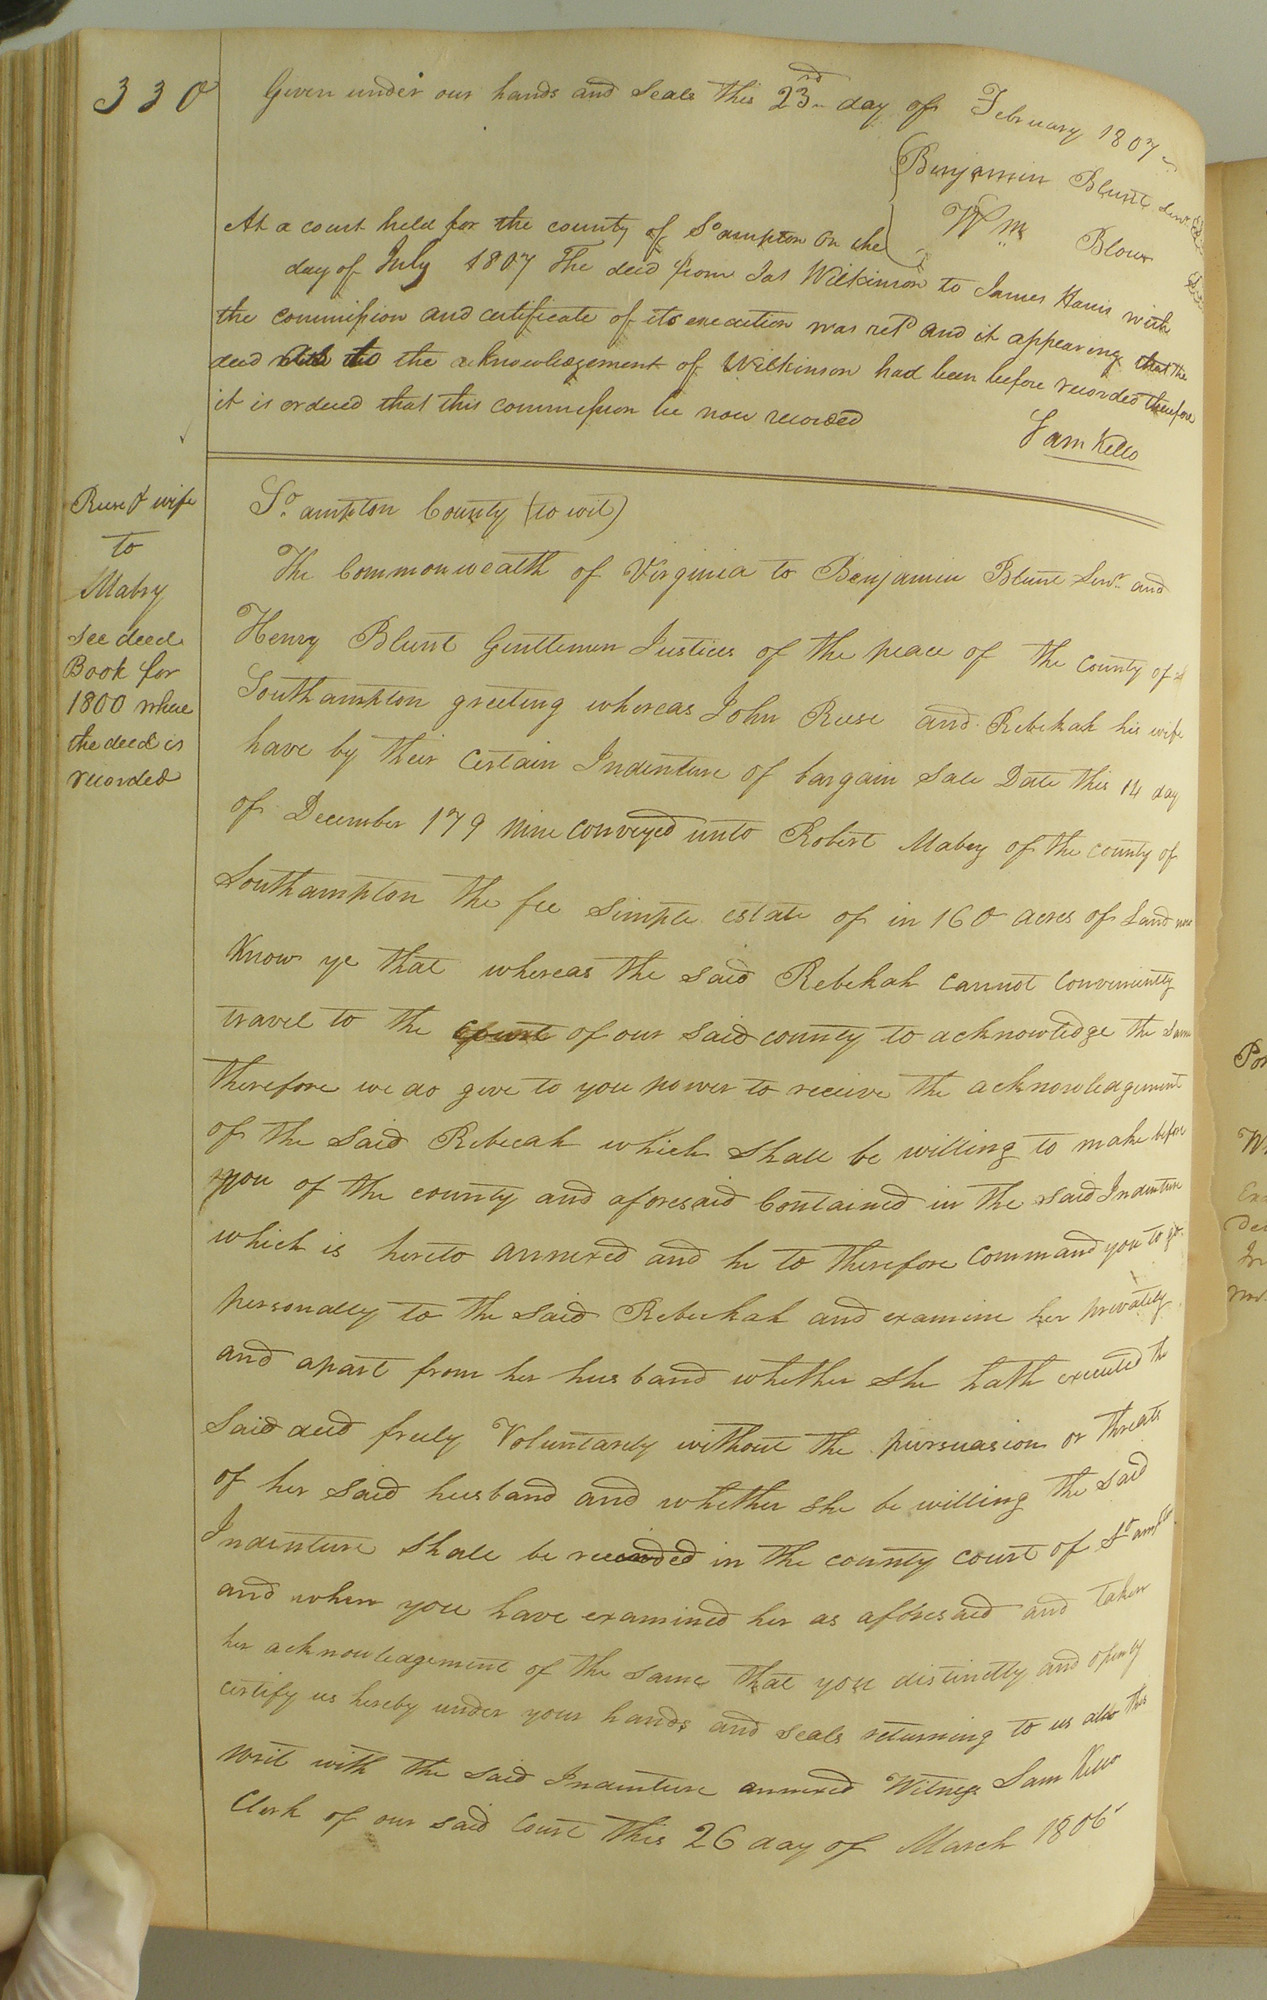 330
Given under our hands and Seals this 23rd day of February 1807
Benjamin Blunt Senr.
Wm Blow
At a court held for the county of So.ampton on the
day of July 1807 The deed from Jas Wilkinson to James Harris with
the commission and certificate of its execution was retd and it appearing that the
deed the acknowledgement of Wilkinson had been before recorded therefore
it is ordered that this commission be now recorded
Sam Kello
Reese & wife
to
Mabry
see deed
Book for
1800 where
the deed is
recorded
So.ampton County (to wit)
The Commonwealth of Virginia to Benjamin Blunt Senr. and
Henry Blunt Gentlemen Justices of the peace of the County of
Southampton greeting whereas John Reese and Rebekah his wife
have by their Certain Indenture of bargain Sale Date this 14 day
of December 179 nine conveyed unto Robert Mabry of the county of
Southampton the fee simple estate of in 160 acres of Land now
Know ye that whereas the said Rebekah cannot conveniently
travel to the court of our said county to acknowledge the same
therefore we do give to you power to receive the acknowledgement
of the Said Rebecah which shall be willing to make before
you of the county and aforesaid Contained in the said Indenture
which is hereto annexed and he to therefore command you to go
personally to the said Rebeckah and examine her privately
and apart from her husband whether she hath executed the
said deed freely Voluntarily without the pursuasion or threats
of her said husband and whether she be willing the said
Indenture shall be recorded in the county court of So.ampton
and when you have examined her as aforesaid and taken
her acknowledgement of the same that you distinctly and openly
certify us hereby under your hands and seals returning to us also this
writ with the said Indenture annexed Witness Sam Kello
Clerk of our said Court this 26 day of March 1806